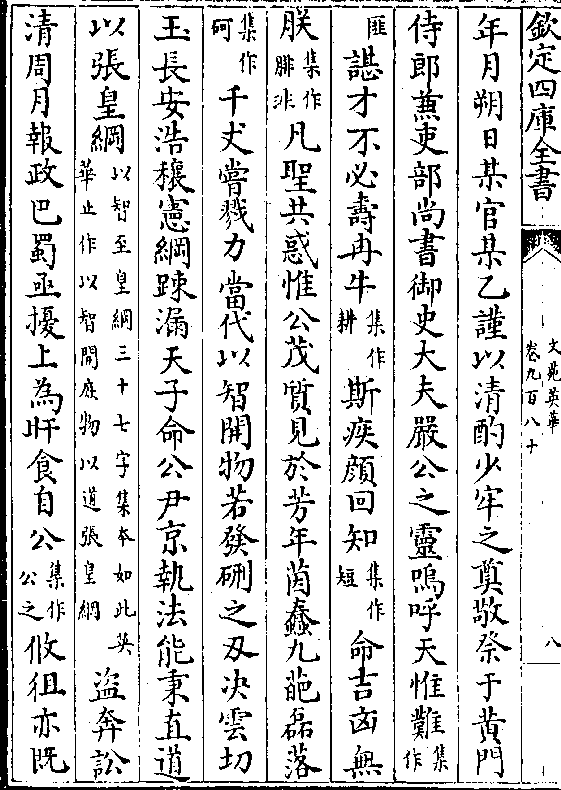 欽定四庫全書
文苑英華
卷九百八十
八
年月朔日某官某乙謹以清酌少牢之奠敬祭于黄門
侍郎蒹吏部尚書御史大夫嚴公之靈嗚呼天惟難集作
匪諶才不必夀冉牛集作耕斯疾顔回知集作短命吉凶無
朕集作腓泮凡聖共惑惟公茂質見於芳年茵蠢九葩磊落
集作砢千丈嘗戮力當代以智開物若發硎之刄决雲切
玉長安浩穰憲綱踈漏天子命公尹京執法能秉直道
以張皇綱以智至皇綱三十七字集本如此英華止作以智開庻物以道張皇綱盜奔訟
清周月報政巴蜀亟擾上為旰食自公集作公之攸徂亦既